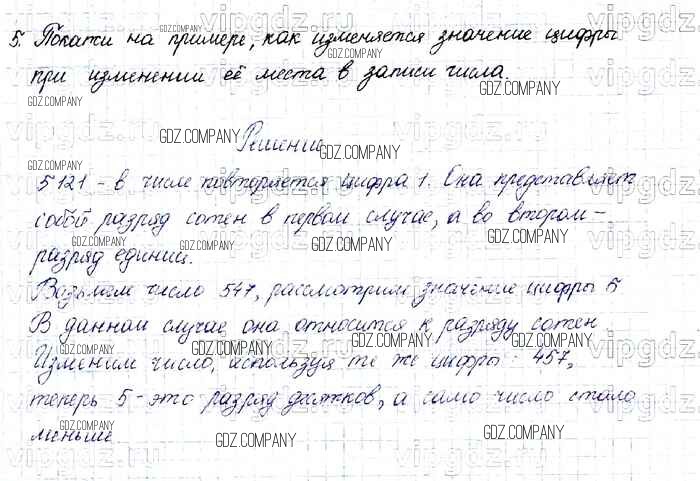 5. Покажи на примере, как изменяется значение цифры
при изменении её места в записи числа.
Решение
5121 - в числе повторяется цифра 1. Она представляет
собой разряд сотен в первом случае, а во втором -
разряд единиц.
Возьмем число 547, рассмотрим значение цифры 5
В данном случае она относится к разряду сотен
Изменим число, используя те же цифры: 457,
теперь 5 - это разряд десятков, а само число стало
меньше